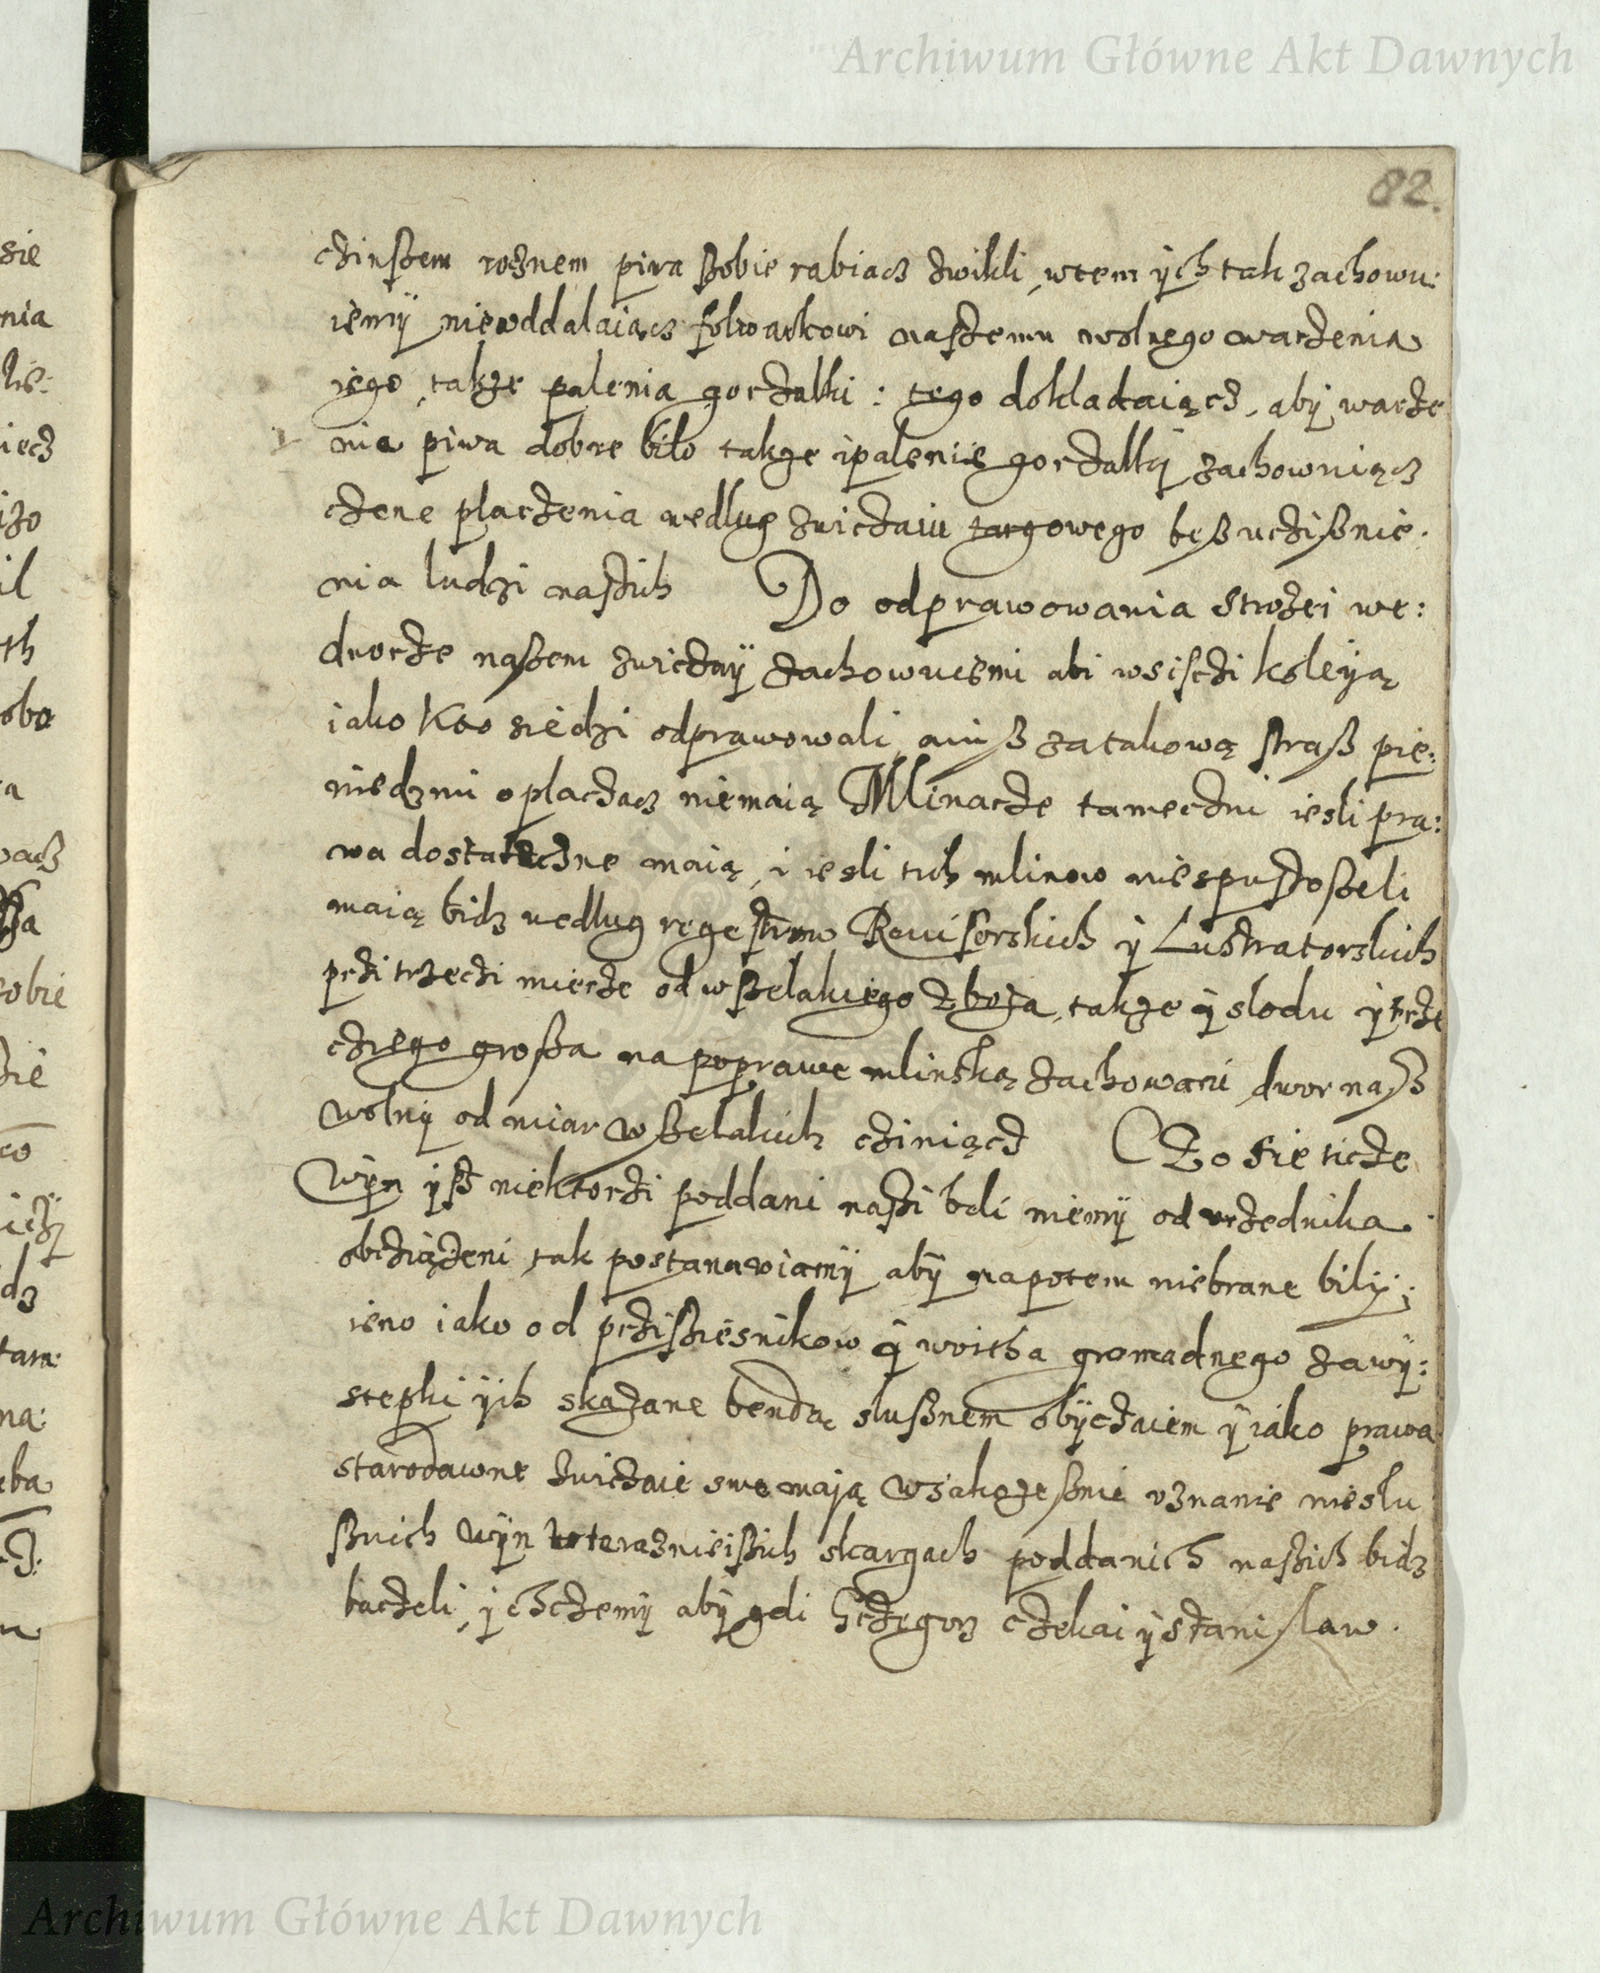 Archiwum Główne Akt Dawnych
82.
cżinßem rożnem piwa ßobie rabiacz zwikli, wtem ÿch tak zachowu:
iemÿ nieoddalaiącz folwarkowi naszemu wolnego warżenia
iego, takze palenia gorżalki : tego dokladaiącz, abÿ warże
nia piwa dobre bilo takze i palenie gorżalki zachowuiącz
cżene placżenia wedlug zwicżaiu targowego beß ucżißnie.
nia ludzi naszich Do odprawowania strożei we:
dworże naßem zwicżaÿ zachowuiemi abi wsiscżi koleÿą
iako kto siedzi odprawowali, aiuß za takową straß pie:
niedzmi oplacżacz niemaią Mlinarże tamecżni iesli pra:
wa dostatecżne maią, i iesli tich mlinow niespustoßeli
maią bidz wedlug regestrow Reuisorskich ÿ Lustratorskich
prżi trzecżi mierże od wßelakiego zboża, takze ÿ slodu ÿ trże
cżiego großa na poprawe mlinską zachowani, dwor naß
wolnÿ od miar wßelakich cżiniącz Czo sie ticże
wÿn ÿsz niektorżi poddani naßi bili niemÿ od vrżednika
obcżiążeni tak postanawiamÿ abÿ napotem niebrane bilÿ;
ieno iako od prżißiesnikow ÿ woitha gromadnego zawÿ:
stepki ÿch skazane bendą slußnem obÿcżaiem ÿ iako prawa
starodawne zwicżaie swe mają wsakże ßnie vznanie nieslu
ßnich wÿn w teraznieißich skargach poddanich naßich bidz
bacżeli, ÿ chcżemÿ abÿ gdi Grżegorz cżekai ÿ stanislaw.
sie
nia
iecz
iżo
il
th
obo
a
obie
co
dz
tam:
na:
eba
Archiwum Główne Akt Dawnych